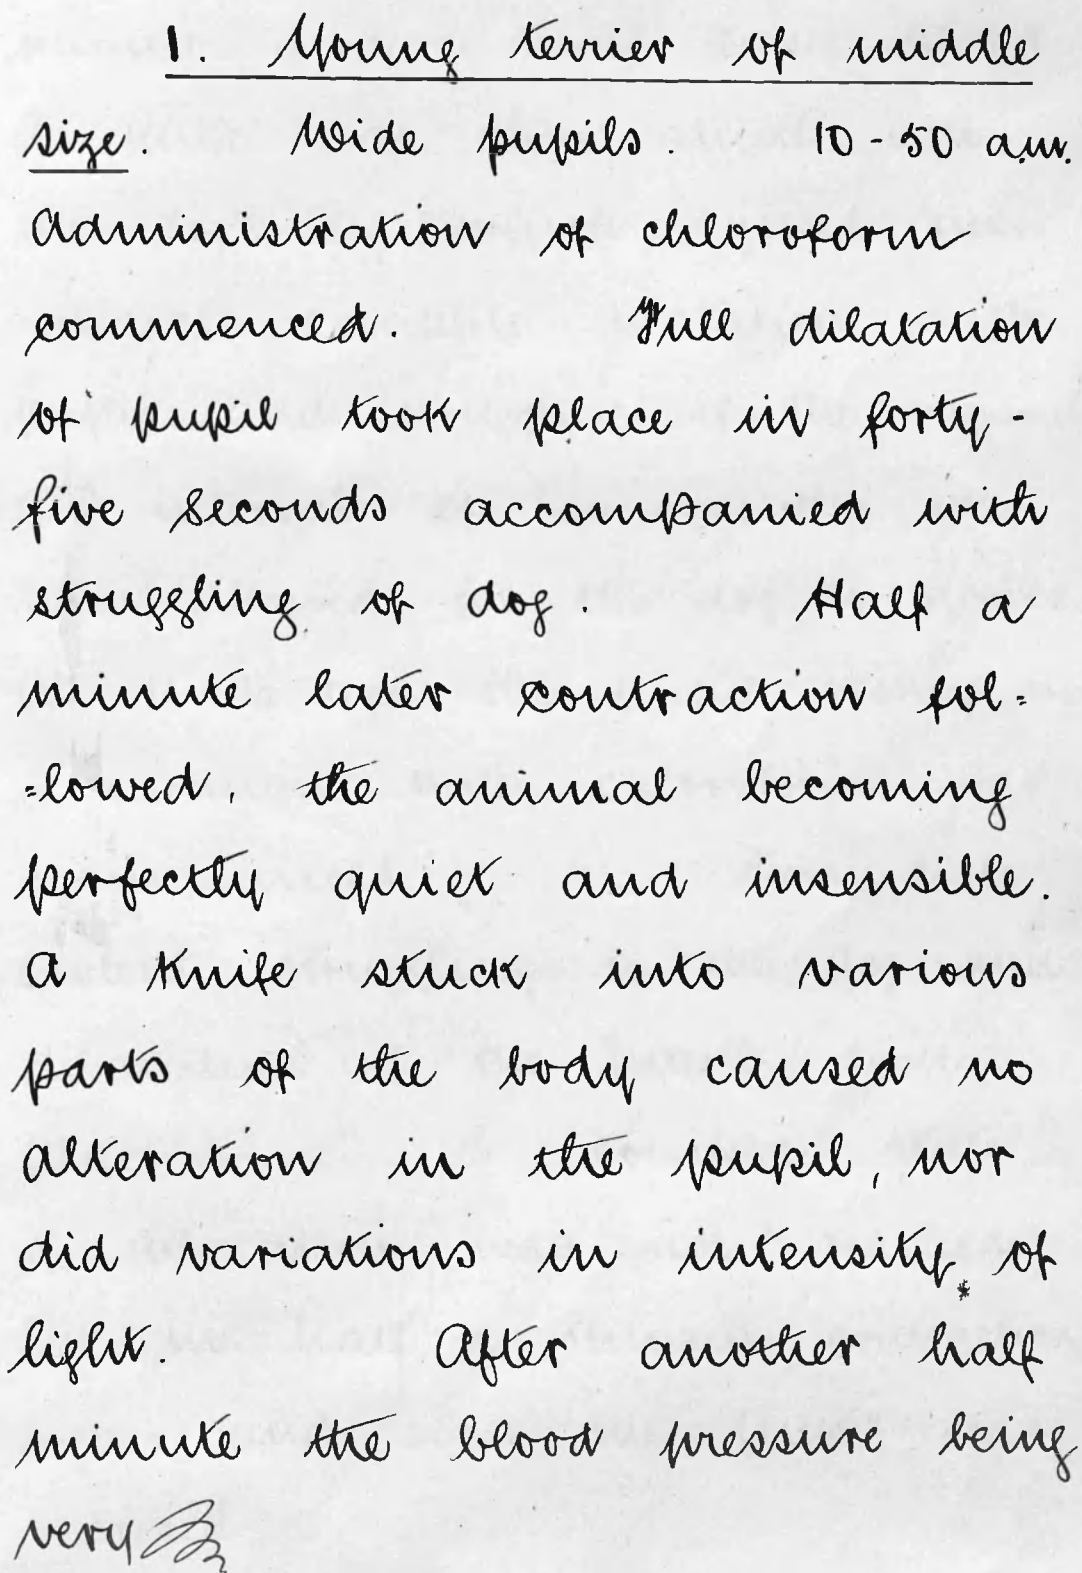 1. Young terrier of middle
size. Wide pupils. 10-50 a.m.
Administration of chloroform
commenced. Full dilatation
of pupil took place in forty-
five seconds accompanied with
struggling of dog. Half a
minute later contraction fol=
=lowed, the animal becoming
perfectly quiet and insensible.
A knife stuck into various
parts of the body caused no
alteration in the pupil, nor
did variations in intensity of
*
light. After another half
minute the blood pressure being
very